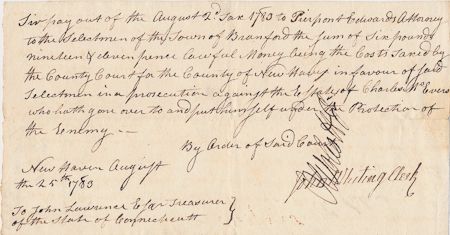 Sir pay out of the August 2d Tax 1783 to Pierpont Edwards Attorney
to the Selectmen of the Town of Branford the sum of Six pounds
nineteen & eleven pence Lawful Money being the Costs Taxed by
the County Court for the County of New Haven in favour of said
Selectmen in a prosecution against the Estate of Charles McEvers
who hath gone over to and put himself under the Protection of
the Enemy --
By Order of Said Court
John Whiting Clerk
New Haven August
the 25th 1783
To John Lawrence Esqr Treasurer
of the State of Connecticutt